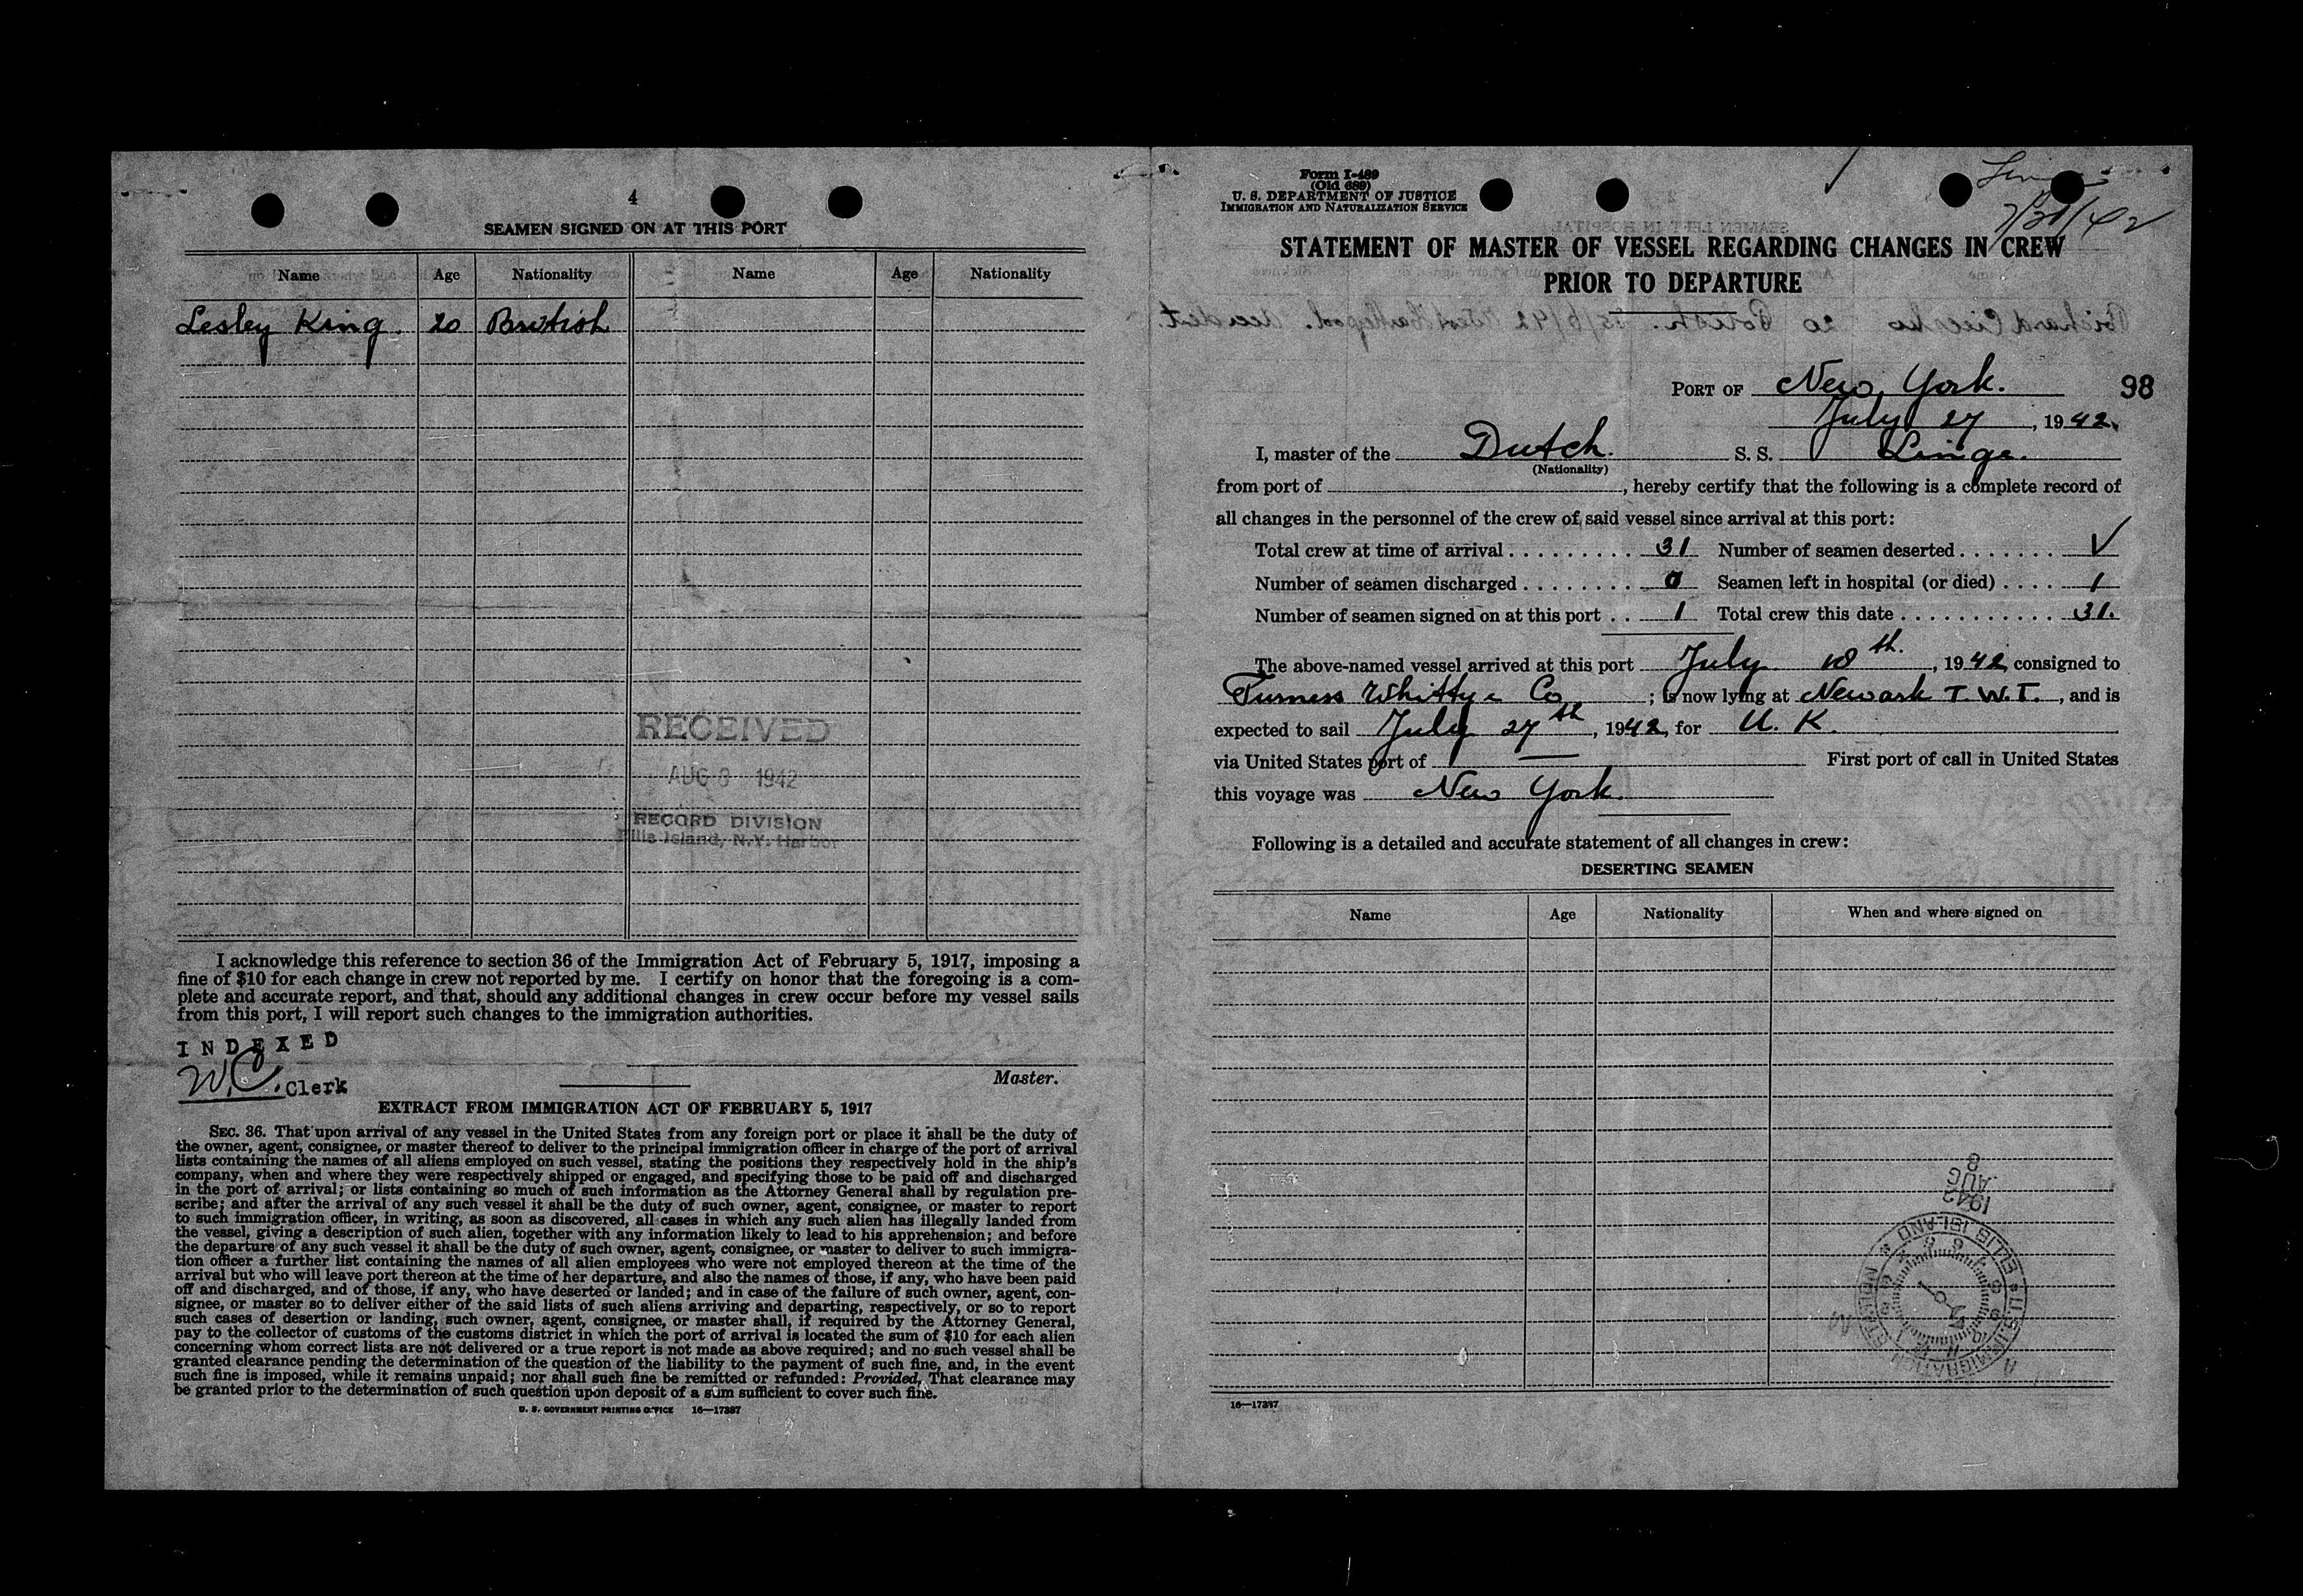 4
SEAMEN SIGNED ON AT THIS PORT
Name Age Nationality Name Age Nationality
Lesley King. 20 British
RECEIVED
AUG 8 1942
RECORD DIVISION
Ellis Island, N.Y. Harbor
I acknowledge this reference to section 36 of the Immigration Act of February 5, 1917, imposing a
fine of $10 for each change in crew not reported by me. I certify on honor that the foregoing is a com-
plete and accurate report, and that, should any additional changes in crew occur before my vessel sails
from this port, I will report such changes to the immigration authorities.
INDEXED
W.C. Clerk
Master.
EXTRACT FROM IMMIGRATION ACT OF FEBRUARY 5, 1917
SEC. 36. That upon arrival of any vessel in the United States from any foreign port or place it shall be the duty of
the owner, agent, consignee, or master thereof to deliver to the principal immigration officer in charge of the port of arrival
lists containing the names of all aliens employed on such vessel, stating the positions they respectively hold in the ship's
company, when and where they were respectively shipped or engaged, and specifying those to be paid off and discharged
in the port of arrival; or lists containing so much of such information as the Attorney General shall by regulation pre-
scribe; and after the arrival of any such vessel it shall be the duty of such owner, agent, consignee, or master to report
to such immigration officer, in writing, as soon as discovered, all cases in which any such alien has illegally landed from
the vessel, giving a description of such alien, together with any information likely to lead to his apprehension; and before
the departure of any such vessel it shall be the duty of such owner, agent, consignee, or master to deliver to such immigra-
tion officer a further list containing the names of all alien employees who were not employed thereon at the time of the
arrival but who will leave port thereon at the time of her departure, and also the names of those, if any, who have been paid
off and discharged, and of those, if any, who have deserted or landed; and in case of the failure of such owner, agent, con-
signee, or master so to deliver either of the said lists of such aliens arriving and departing, respectively, or so to report
such cases of desertion or landing, such owner, agent, consignee, or master shall, if required by the Attorney General,
pay to the collector of customs of the customs district in which the port of arrival is located the sum of $10 for each alien
concerning whom correct lists are not delivered or a true report is not made as above required; and no such vessel shall be
granted clearance pending the determination of the question of the liability to the payment of such fine, and, in the event
such fine is imposed, while it remains unpaid; nor shall such fine be remitted or refunded: Provided, That clearance may
be granted prior to the determination of such question upon deposit of a sum sufficient to cover such fine.
U. S. GOVERNMENT PRINTING OFFICE 16—17387
Form I-489
(Old 689)
U. S. DEPARTMENT OF JUSTICE
IMMIGRATION AND NATURALIZATION SERVICE
7/31/42
STATEMENT OF MASTER OF VESSEL REGARDING CHANGES IN CREW
PRIOR TO DEPARTURE
PORT OF New York. 98
July 27, 1942.
I, master of the Dutch. S. S. Linge.
(Nationality)
from port of , hereby certify that the following is a complete record of
all changes in the personnel of the crew of said vessel since arrival at this port:
Total crew at time of arrival . . . . . . . . . 31 Number of seamen deserted . . . . . . . ✓
Number of seamen discharged . . . . . . . . 0 Seamen left in hospital (or died) . . . . 1
Number of seamen signed on at this port . . 1 Total crew this date . . . . . . . . . . . . 31.
The above-named vessel arrived at this port July 18th., 1942 consigned to
Furness Whitty & Co ; is now lying at Newark T.W.T. , and is
expected to sail July 27th, 1942, for U. K.
via United States port of — First port of call in United States
this voyage was New York.
Following is a detailed and accurate statement of all changes in crew:
DESERTING SEAMEN
Name Age Nationality When and where signed on
1942
AUG
8
U.S. IMMIGRATION STATION ELLIS ISLAND
16—17387